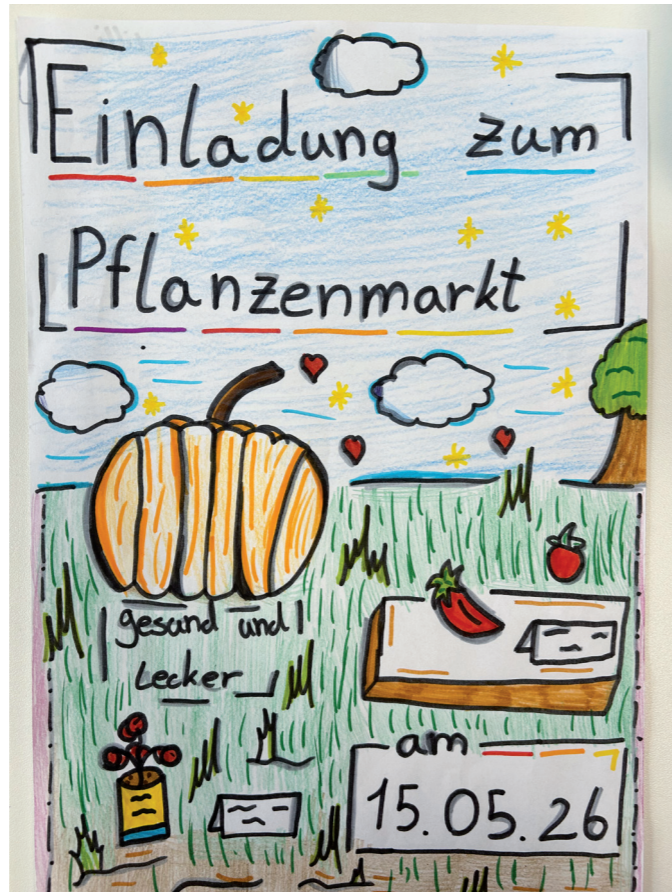 Einladung zum
Pflanzenmarkt
gesand und
Lecker
am
15.05.26